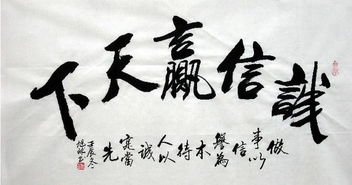 誠信贏天下
做事以信譽為本待人以誠定當先
壬辰冬